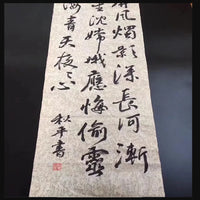 風燭影深長河漸
星沈嫦娥應悔偷靈
海青天夜々心
秋平書